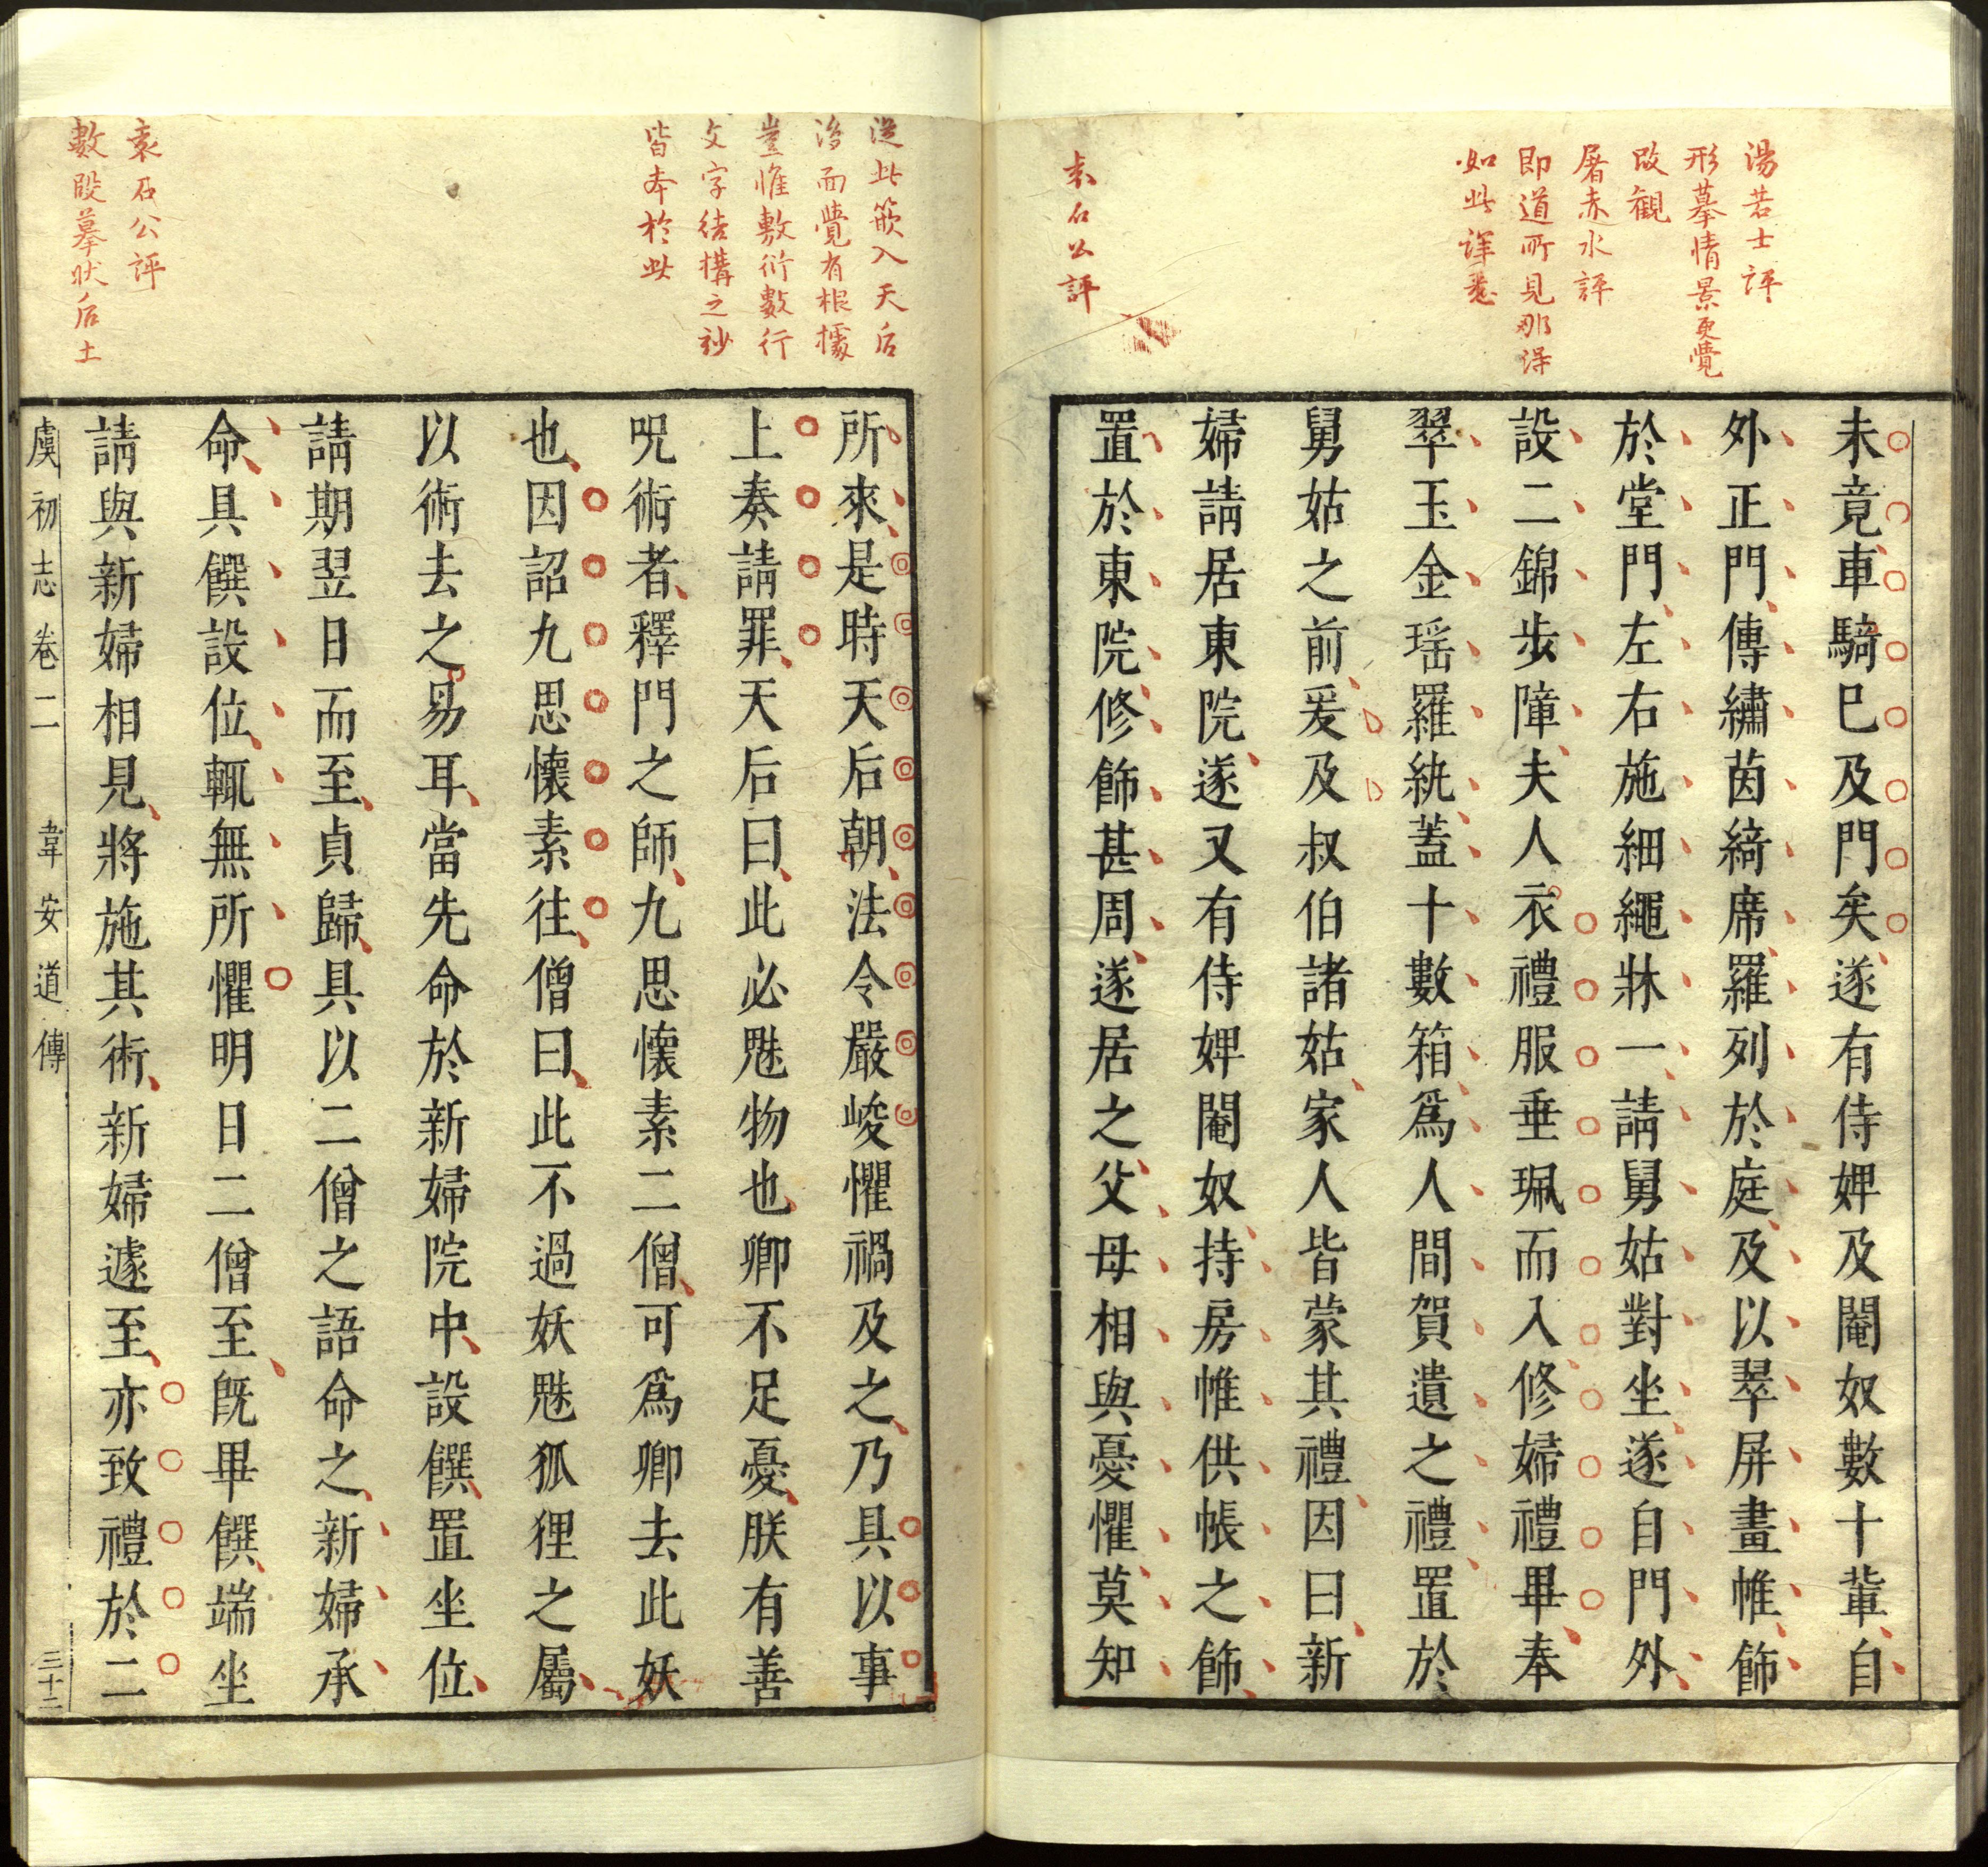 湯若士評
形摹情景更覺
改觀
屠赤水評
即道所見那得
如此詳悉
袁石公評
未竟車騎巳及門矣遂有侍婢及閹奴數十輩自
外正門傳繡茵綺席羅列於庭及以翠屏畫帷飾
於堂門左右施細繩牀一請舅姑對坐遂自門外
設二錦步障夫人衣禮服垂珮而入修婦禮畢奉
翠玉金瑶羅紈蓋十數箱爲人間賀遺之禮置於
舅姑之前爰及叔伯諸姑家人皆蒙其禮因曰新
婦請居東院遂又有侍婢閹奴持房帷供帳之飾
置於東院修飾甚周遂居之父母相與憂懼莫知
從此篏入天后
評而覺有根據
豈惟敷衍數行
文字結構之玅
皆本於此
袁石公評
數段摹狀后土
所來是時天后朝法令嚴峻懼禍及之乃具以事
上奏請罪天后曰此必魅物也卿不足憂朕有善
呪術者釋門之師九思懷素二僧可爲卿去此妖
也因詔九思懷素往僧曰此不過妖魅狐狸之屬
以術去之易耳當先命於新婦院中設饌置坐位
請期翌日而至貞歸具以二僧之語命之新婦承
命具饌設位輒無所懼明日二僧至旣畢饌端坐
請與新婦相見將施其術新婦遽至亦致禮於二
虞初志卷二 韋安道傳 三十二